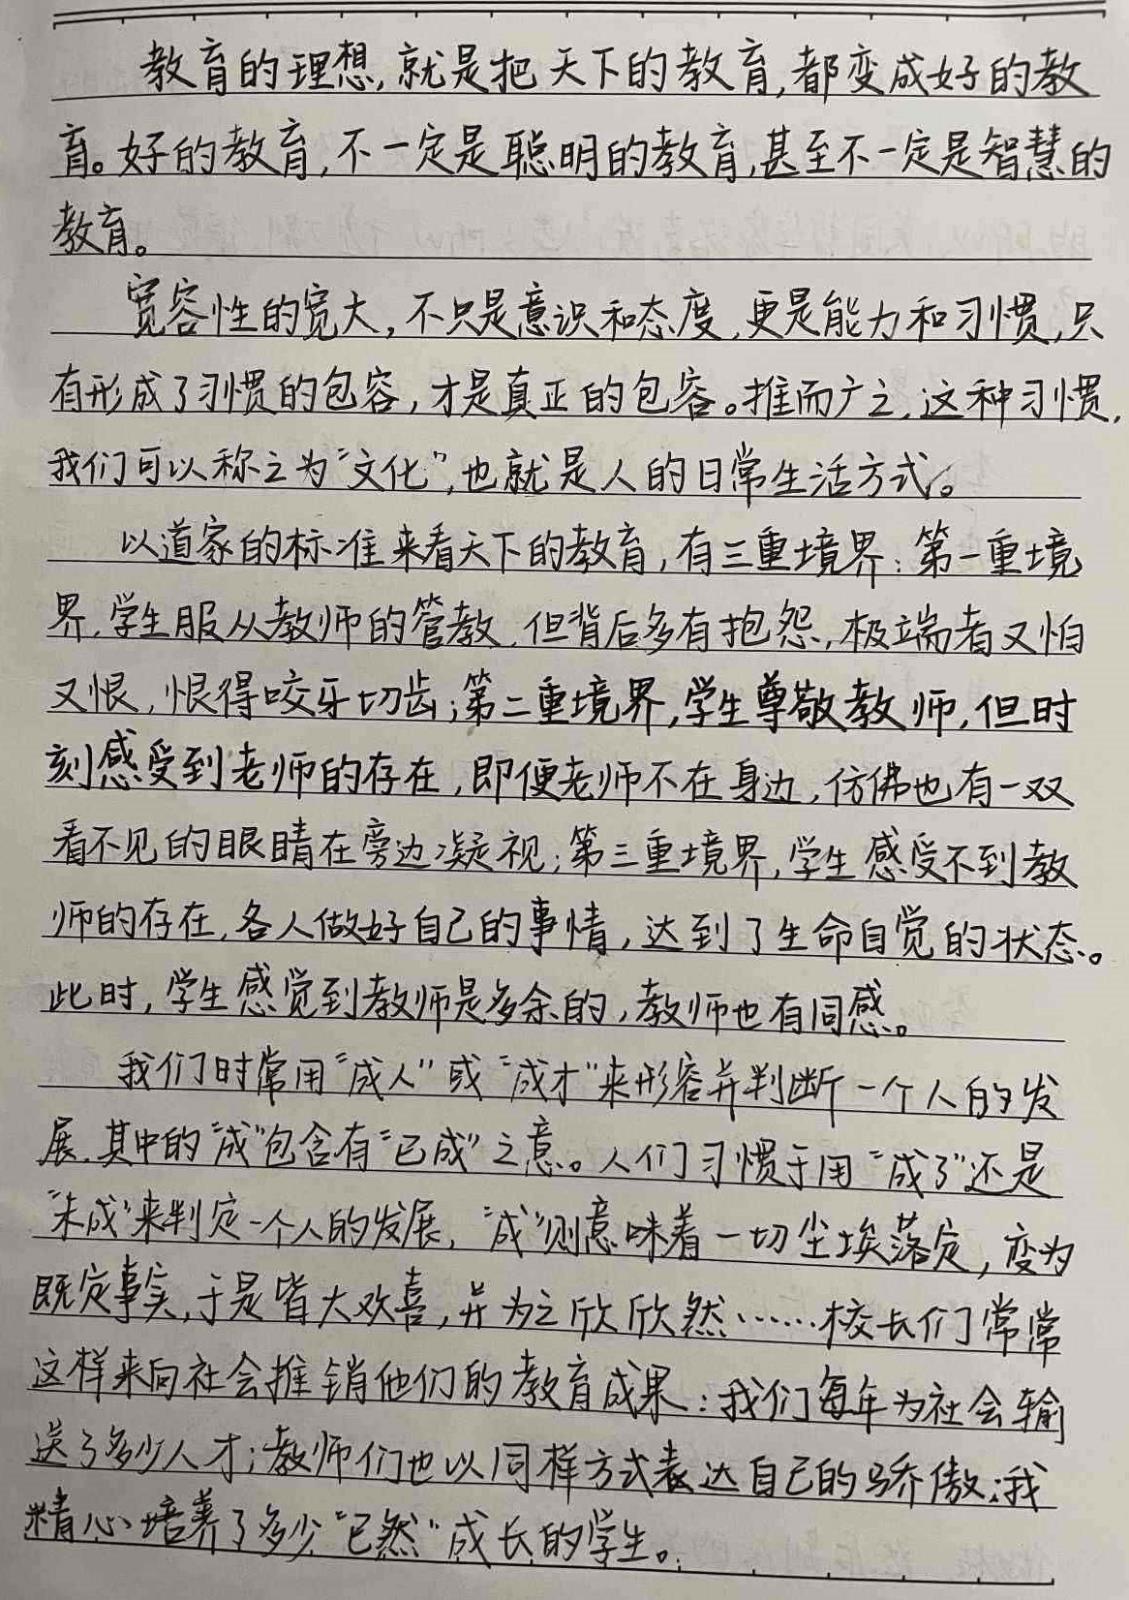 教育的理想,就是把天下的教育,都变成好的教
育。好的教育,不一定是聪明的教育,甚至不一定是智慧的
教育。
宽容性的宽大,不只是意识和态度,更是能力和习惯,只
有形成了习惯的包容,才是真正的包容。推而广之,这种习惯,
我们可以称之为“文化”,也就是人的日常生活方式。
以道家的标准来看天下的教育,有三重境界:第一重境
界,学生服从教师的管教,但背后多有抱怨,极端者又怕
又恨,恨得咬牙切齿;第二重境界,学生尊敬教师,但时
刻感受到老师的存在,即便老师不在身边,仿佛也有一双
看不见的眼睛在旁边凝视;第三重境界,学生感受不到教
师的存在,各人做好自己的事情,达到了生命自觉的状态。
此时,学生感觉到教师是多余的,教师也有同感。
我们时常用“成人”或“成才”来形容并判断一个人的发
展,其中的“成”包含有“已成”之意。人们习惯于用“成了”还是
“未成”来判定一个人的发展,“成”则意味着一切尘埃落定,变为
既定事实,于是皆大欢喜,并为之欣欣然……校长们常常
这样来向社会推销他们的教育成果:我们每年为社会输
送了多少人才;教师们也以同样方式表达自己的骄傲:我
精心培养了多少“已然”成长的学生。